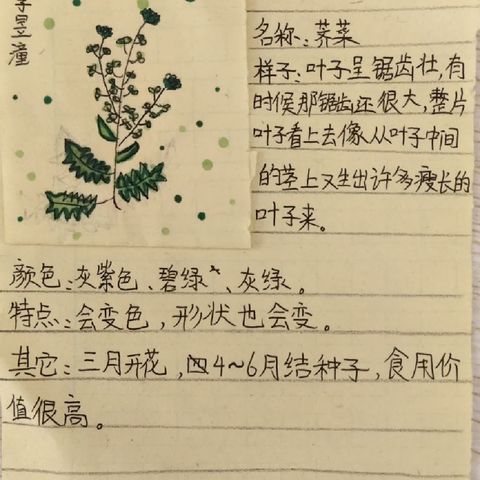 昱潼
名称：荠菜
样子：叶子呈锯齿壮，有
时候那锯齿还很大，整片
叶子看上去像从叶子中间
的茎上又生出许多瘦长的
叶子来。
颜色：灰紫色、碧绿、灰绿。
特点：会变色，形状也会变。
其它：三月开花，四4~6月结种子，食用价
值很高。